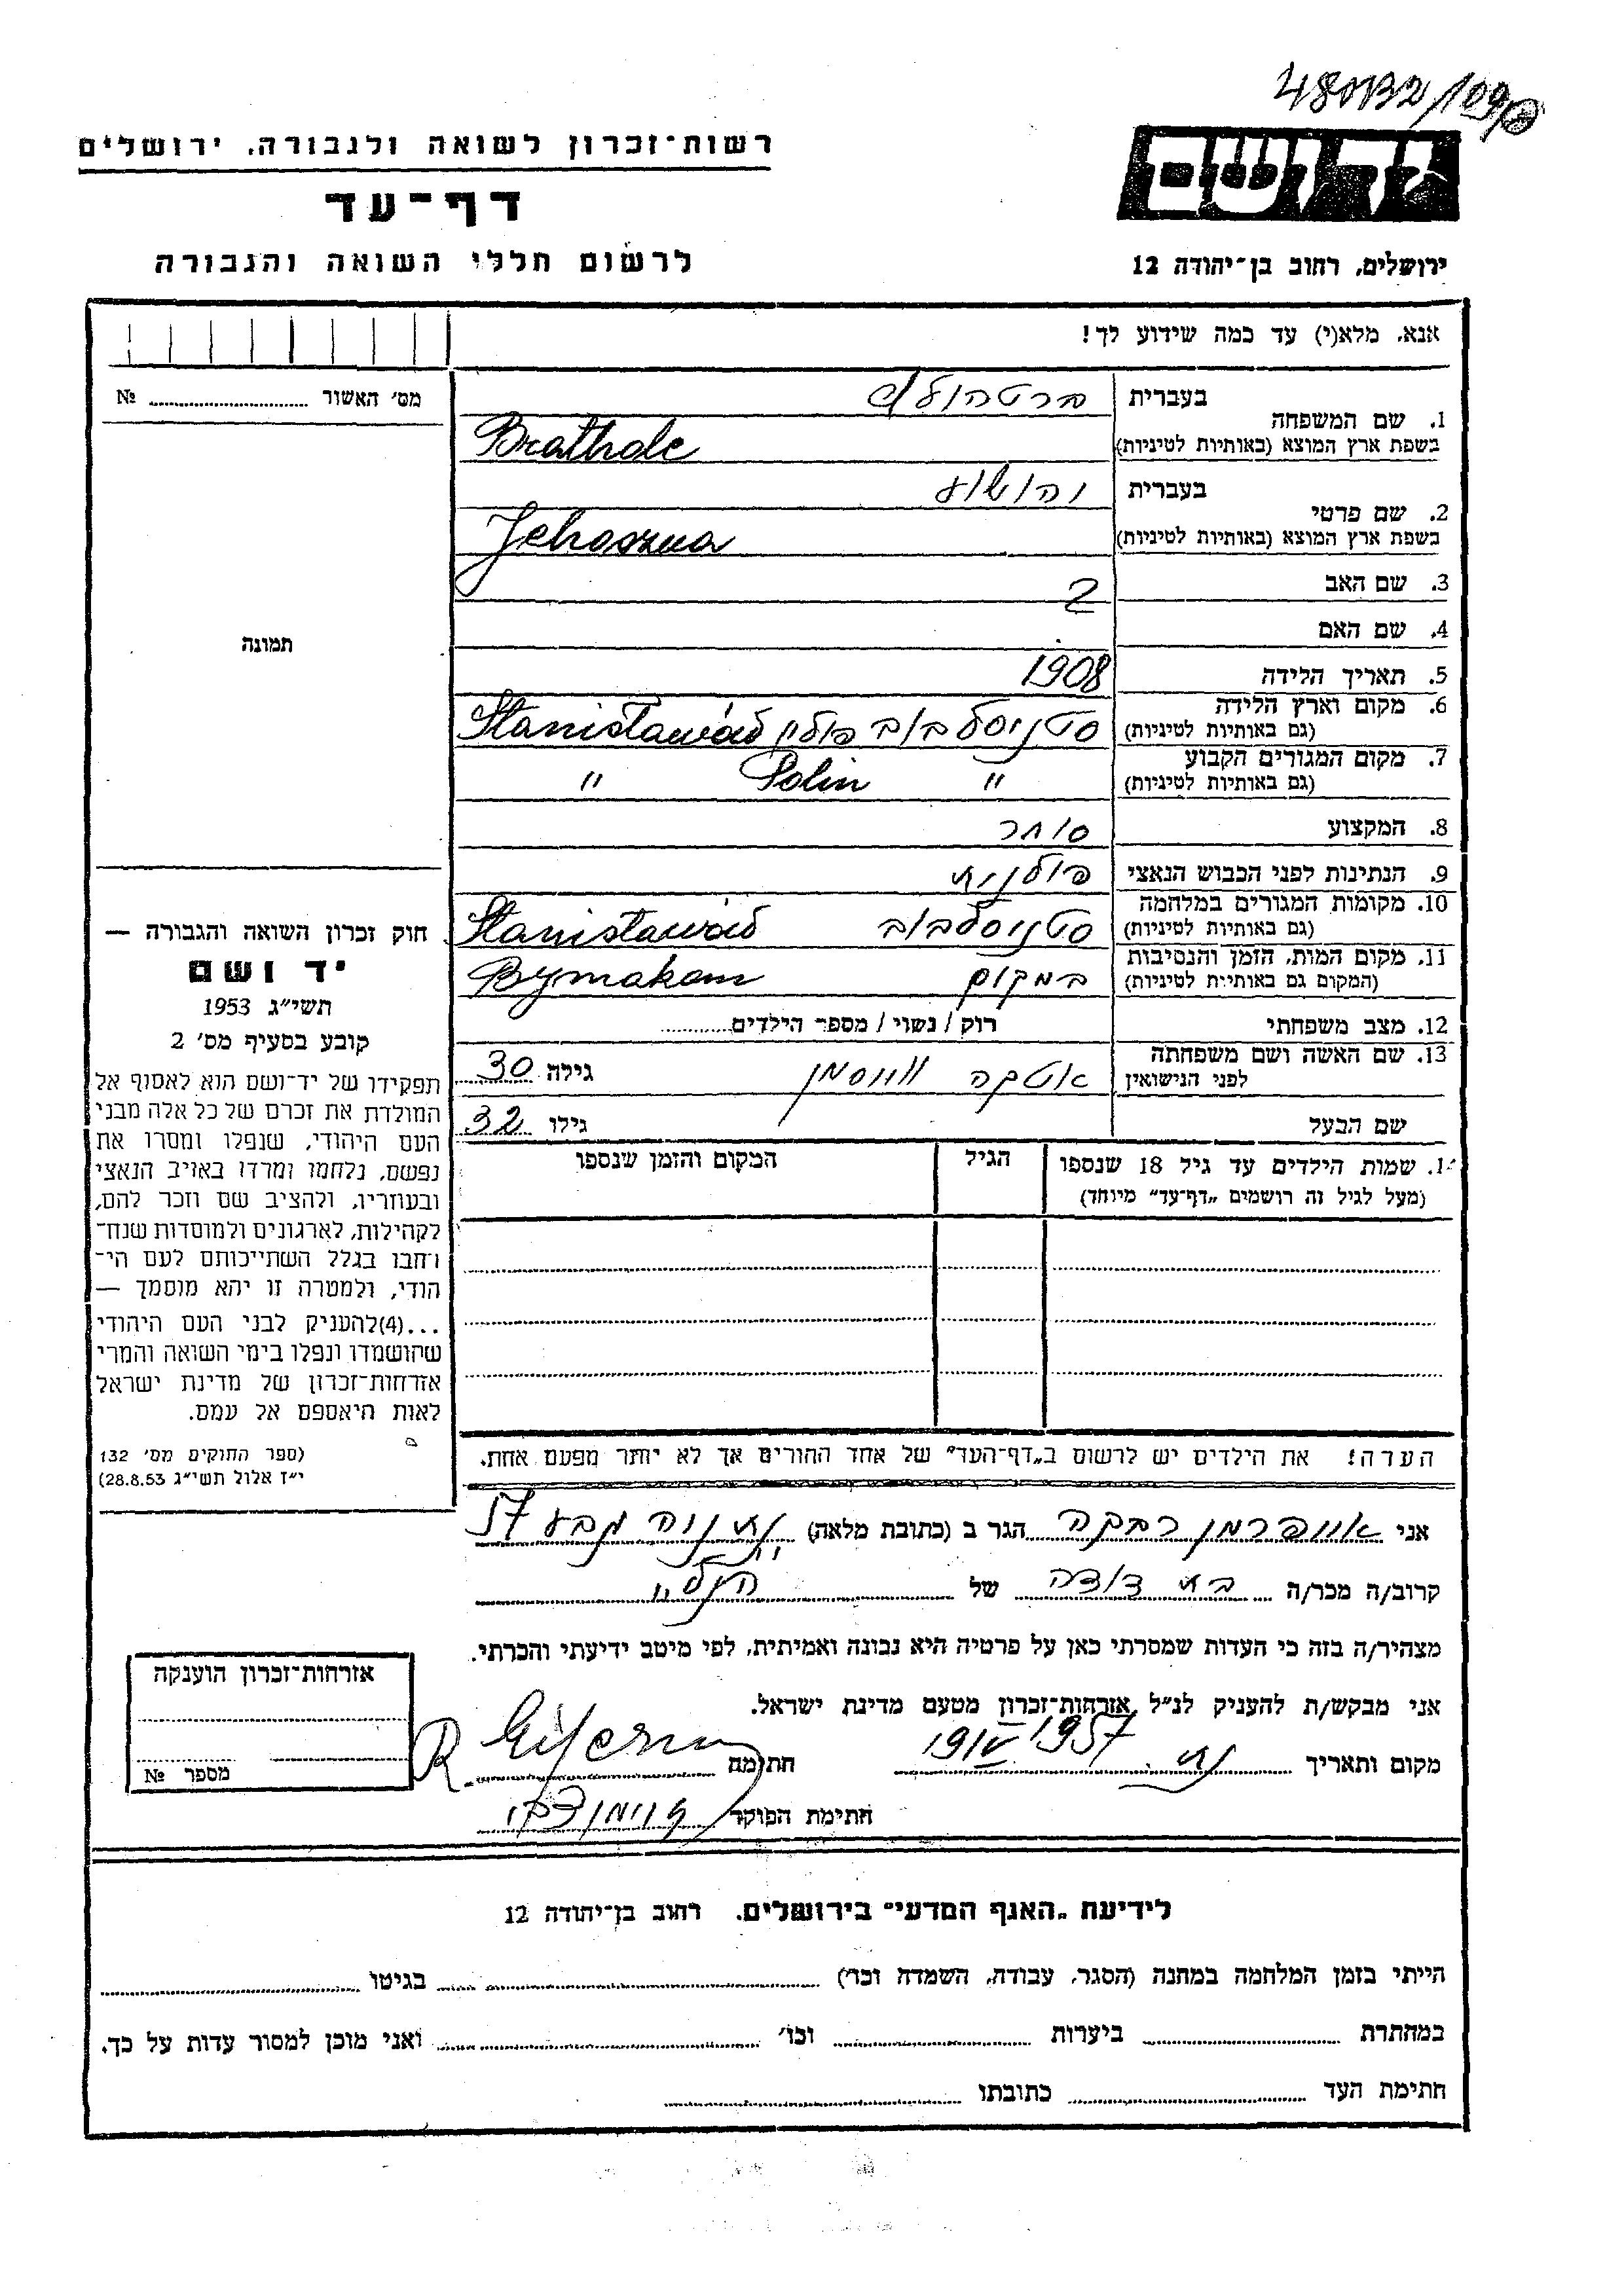 רשות־זכרון לשואה ולגבורה, ירושלים
דף־עד
לרשום חללי השואה והגבורה
ידושם
ירושלים, רחוב בן־יהודה 12
אנא, מלא(י) עד כמה שידוע לך!
מס׳ האשור № ............
תמונה
1. שם המשפחה
בעברית
בשפת ארץ המוצא (באותיות לטיניות) Brathole
2. שם פרטי
בעברית יהושוע
בשפת ארץ המוצא (באותיות לטיניות) Jehoszua
3. שם האב
4. שם האם
5. תאריך הלידה 1908
6. מקום וארץ הלידה (גם באותיות לטיניות) סטניסלבוב פולין Stanisławów
7. מקום המגורים הקבוע (גם באותיות לטיניות) " Polin "
8. המקצוע סוחר
9. הנתינות לפני הכבוש הנאצי פולנית
10. מקומות המגורים במלחמה (גם באותיות לטיניות) סטניסלבוב Stanisławów
11. מקום המות, הזמן והנסיבות (המקום גם באותיות לטיניות) במקום Bymakom
12. מצב משפחתי רוק / נשוי / מספר הילדים ............
13. שם האשה ושם משפחתה לפני הנישואין אטקה גילה 30
שם הבעל גילו 32
שמות הילדים עד גיל 18 שנספו (מעל לגיל זה רושמים „דף־עד" מיוחד)
הגיל
המקום והזמן שנספו
הערה! את הילדים יש לרשום ב„דף־העד" של אחד ההורים אך לא יותר מפעם אחת.
חוק זכרון השואה והגבורה —
יד ושם
תשי״ג 1953
קובע בסעיף מס׳ 2
תפקידו של יד־ושם הוא לאסוף אל
המולדת את זכרם של כל אלה מבני
העם היהודי, שנפלו ומסרו את
נפשם, נלחמו ומרדו באויב הנאצי
ובעוזריו, ולהציב שם וזכר להם,
לקהילות, לארגונים ולמוסדות שנח־
רחבו בגלל השתייכותם לעם הי־
הודי, ולמטרה זו יהא מוסמך —
...(4)להעניק לבני העם היהודי
שהושמדו ונפלו בימי השואה והמרי
אזרחות־זכרון של מדינת ישראל
לאות היאספם אל עמם.
(ספר החוקים מס׳ 132
י״ז אלול תשי״ג 28.8.53)
אני רבקה הגר ב (כתובת מלאה) נתניה 57
קרוב/ה מכר/ה בת דודה של
מצהיר/ה בזה כי העדות שמסרתי כאן על פרטיה היא נכונה ואמיתית, לפי מיטב ידיעתי והכרתי.
אני מבקש/ת להעניק לנ״ל אזרחות־זכרון מטעם מדינת ישראל.
מקום ותאריך 19 IV 1957 חתימה
חתימת הפוקד
אזרחות־זכרון הוענקה
מספר №
לידיעת „האגף המדעי" בירושלים, רחוב בן־יהודה 12
הייתי בזמן המלחמה במחנה (הסגר, עבודה, השמדה וכו׳) ............ בגיטו ............
במחתרת ............ ביערות ............ וכו׳ ............ ואני מוכן למסור עדות על כך.
חתימת העד ............ כתובתו ............